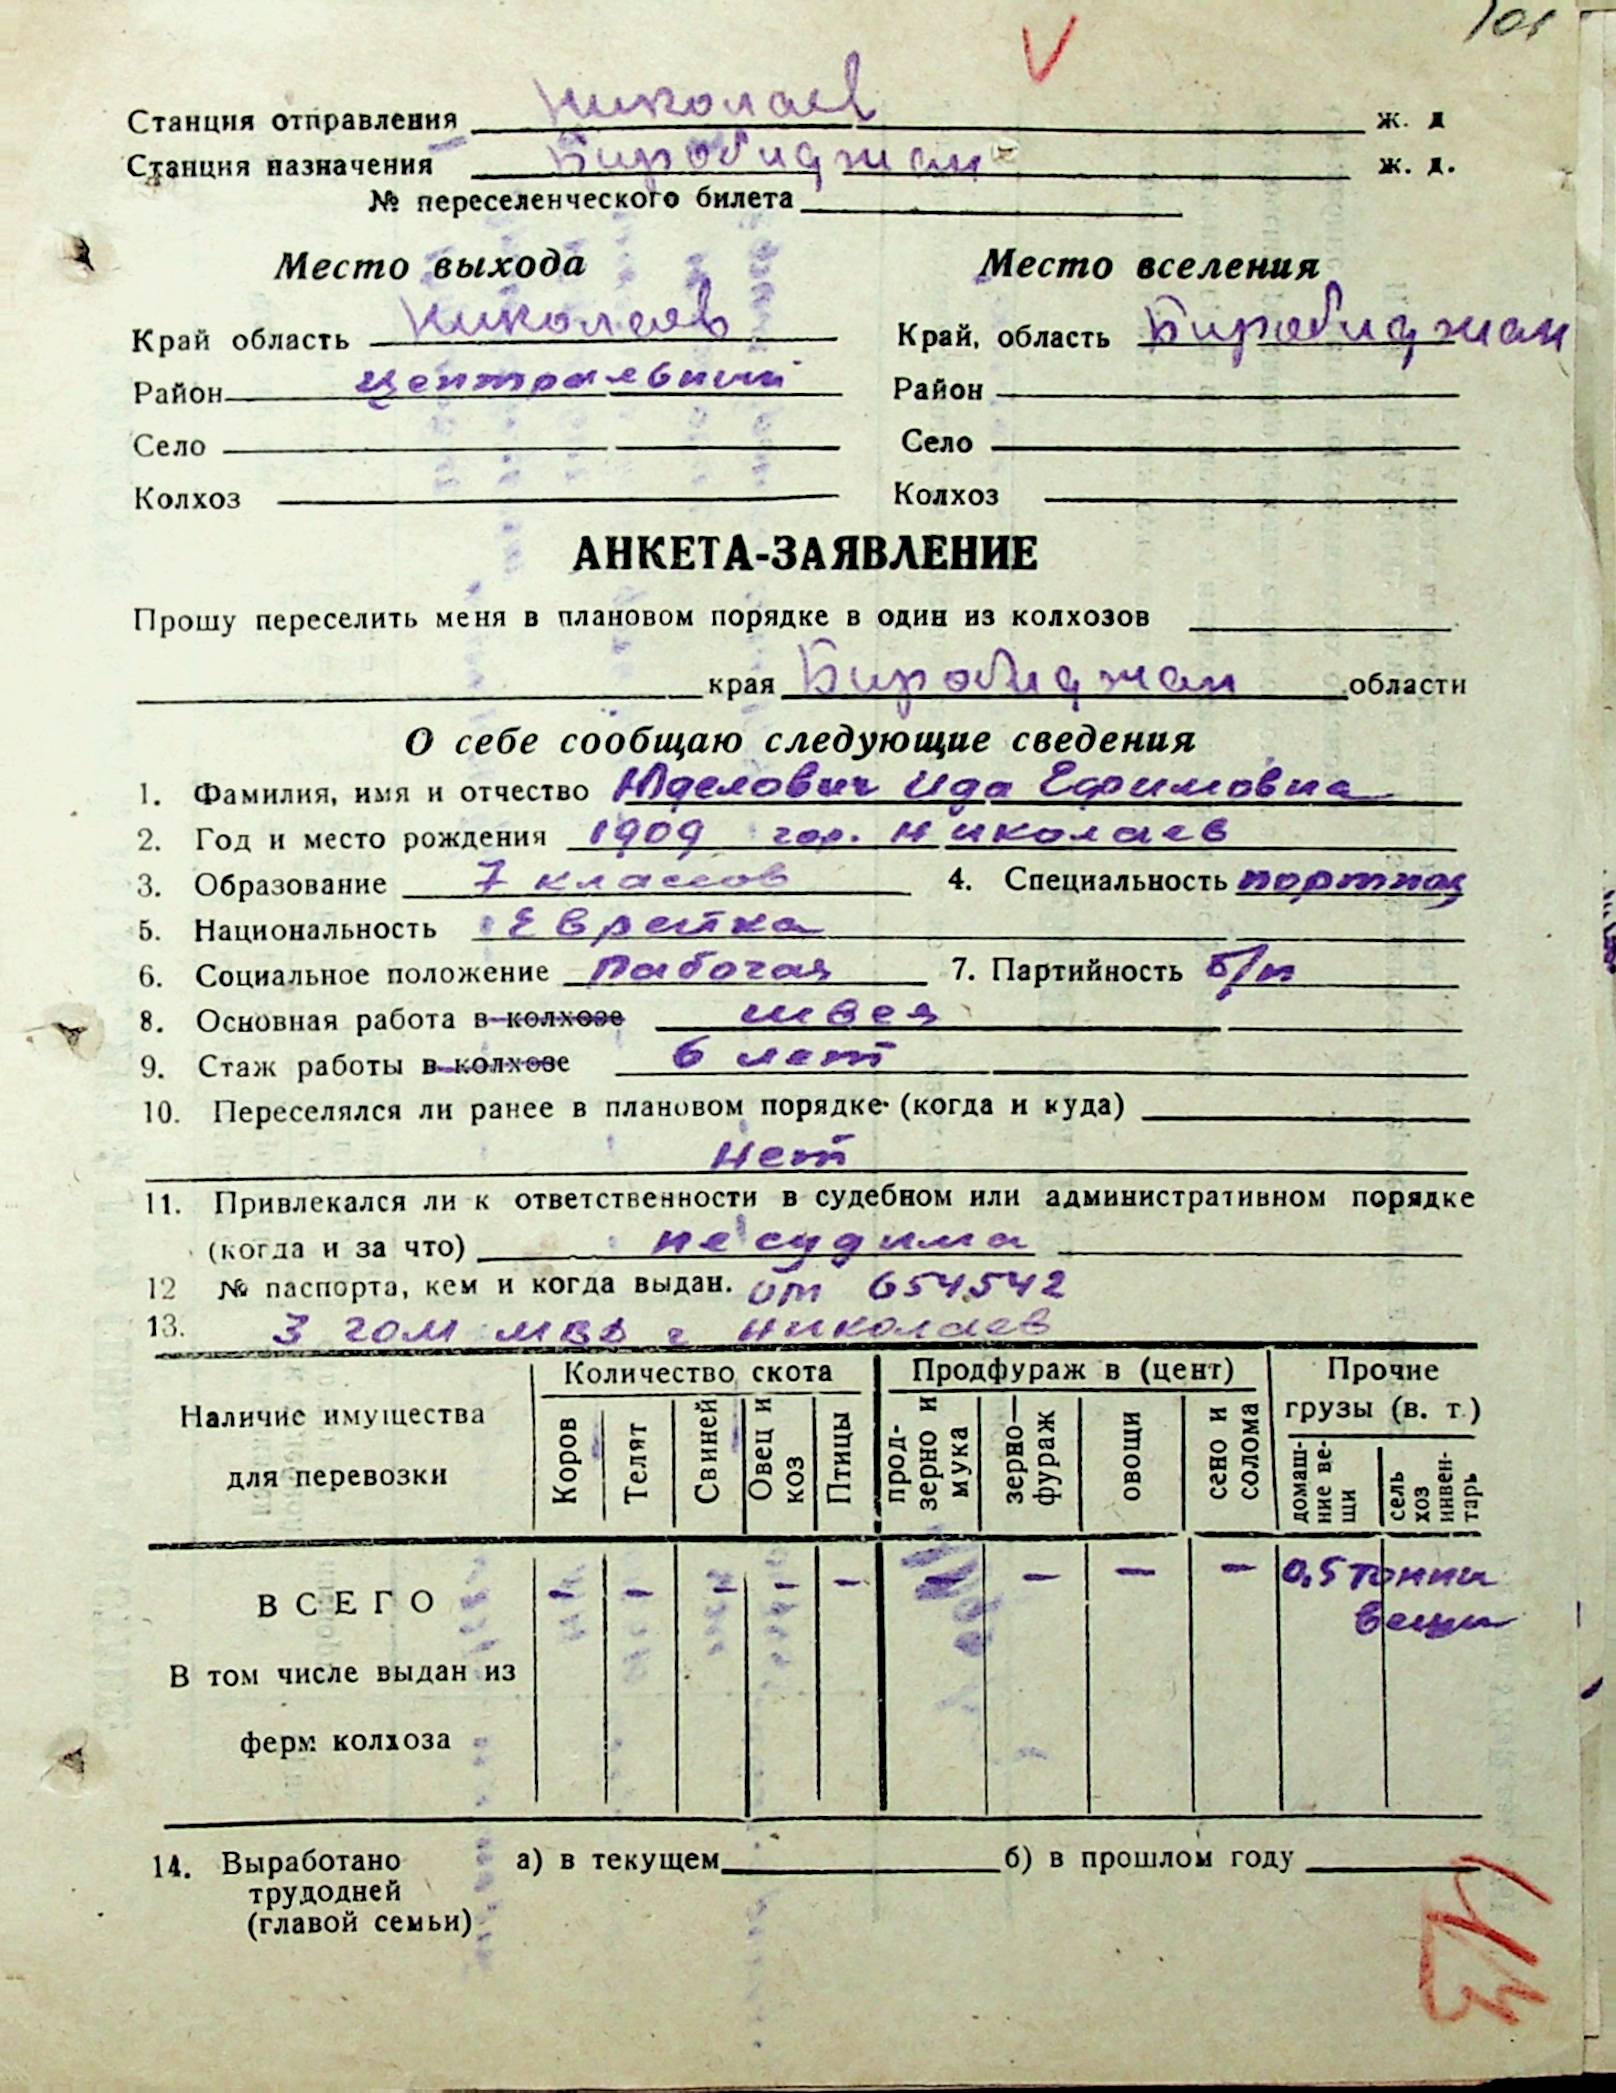 101
Станция отправления Николаев ж. д
Станция назначения Биробиджан ж. д.
№ переселенческого билета
Место выхода Место вселения
Край область Николаев Край, область Биробиджан
Район Центральный Район
Село Село
Колхоз Колхоз
АНКЕТА-ЗАЯВЛЕНИЕ
Прошу переселить меня в плановом порядке в один из колхозов
края Биробиджан области
О себе сообщаю следующие сведения
1. Фамилия, имя и отчество Юделович Ида Ефимовна
2. Год и место рождения 1909 гор. Николаев
3. Образование 7 классов 4. Специальность портная
5. Национальность Еврейка
6. Социальное положение Рабочая 7. Партийность б/п
8. Основная работа в колхозе швея
9. Стаж работы в колхозе 6 лет
10. Переселялся ли ранее в плановом порядке (когда и куда)
Нет
11. Привлекался ли к ответственности в судебном или административном порядке
(когда и за что) не судима
12 № паспорта, кем и когда выдан. 654542
13. 3 ГОМ МВД г Николаев
Наличие имущества для перевозки
Количество скота Продфураж в (цент) Прочие грузы (в. т.)
Коров Телят Свиней Овец и коз Птицы прод-зерно и мука зерно—фураж овощи сено и солома домаш-ние ве-щи сель хоз инвен-тарь
ВСЕГО – – – – – – – – – 0,5 тонны
вещи
В том числе выдан из
ферм колхоза
14. Выработано а) в текущем б) в прошлом году
трудодней
(главой семьи)